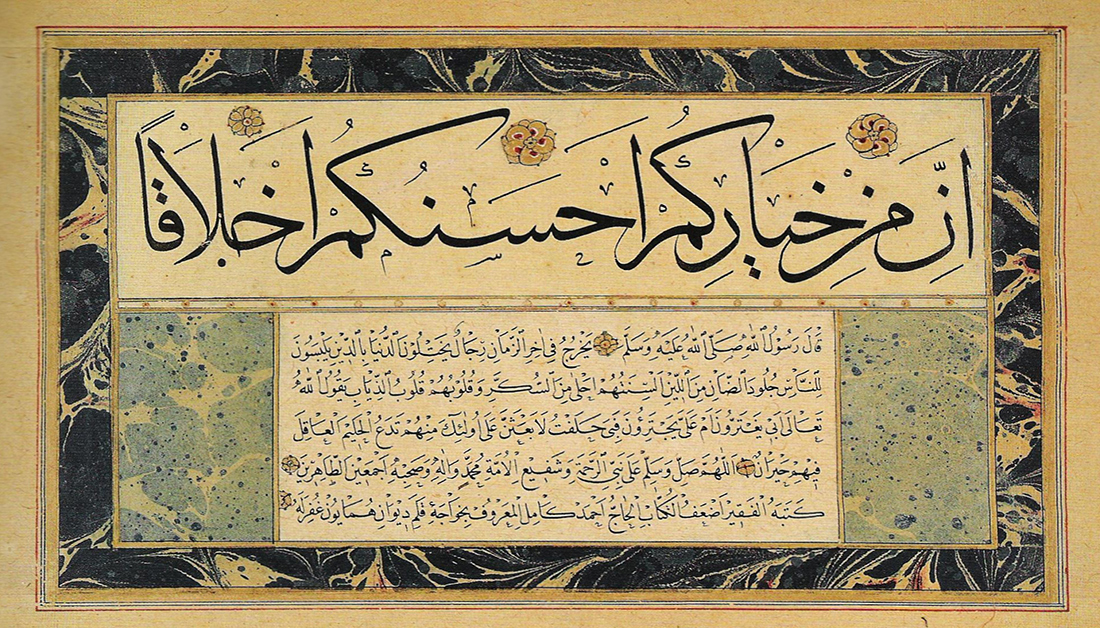 اِنَّ مِنْ خِيَارِكُمْ اَحَاسِنُكُمْ اَخْلَاقًا
قَالَ رَسُولُ اللّٰهِ صَلَّى اللّٰهُ عَلَيْهِ وَسَلَّمَ يَخْرُجُ فِى اٰخِرِ الزَّمَانِ رِجَالٌ يَخْتِلُونَ الدُّنْيَا بِالدِّينِ يَلْبَسُونَ
لِلنَّاسِ جُلُودَ الضَّأْنِ مِنَ اللِّينِ اَلْسِنَتُهُمْ اَحْلٰى مِنَ السُّكَّرِ وَقُلُوبُهُمْ قُلُوبُ الذِّئَابِ يَقُولُ اللّٰهُ
تَعَالٰى اَبِى يَغْتَرُّونَ اَمْ عَلَىَّ يَجْتَرِؤُنَ فَبِى حَلَفْتُ لَاَبْعَثَنَّ عَلٰى اُولٰئِكَ مِنْهُمْ تَدَعُ الْحَلِيمَ الْعَاقِلَ
فِيهِمْ حَيْرَانَ اَللّٰهُمَّ صَلِّ وَسَلِّمْ عَلٰى نَبِىِّ الرَّحْمَةِ وَشَفِيعِ الْاُمَّةِ مُحَمَّدٍ وَاٰلِهِ وَصَحْبِهِ اَجْمَعِينَ الطَّاهِرِينَ
كَتَبَهُ الْفَقِيرُ اَضْعَفُ الْكُتَّابِ الْحَاجُّ اَحْمَدْ كَامِلُ الْمَعْرُوفُ بِخَوَاجَهِٔ قَلَمِ دِيوَانِ هُمَايُونْ غُفِرَلَهُ